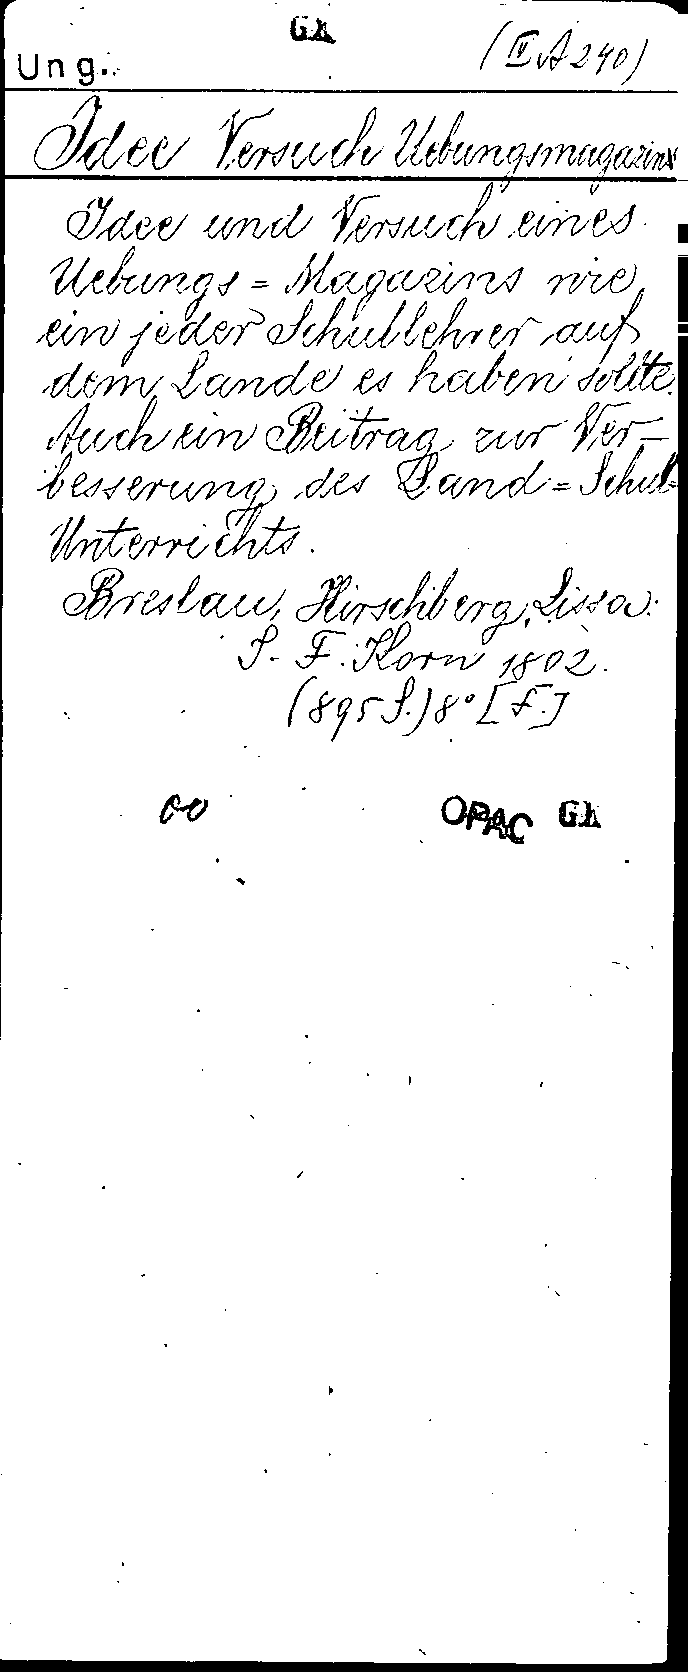 GK
Ung. (IV A 240)
Idee Versuch Uebungsmagazins
Idee und Versuch eines
Uebungs=Magazins wie
ein jeder Schullehrer auf
dem Lande es haben sollte.
Auch ein Beitrag zur Ver-
besserung des Land=Schul=
Unterrichts.
Breslau, Hirschberg, Lissa:
J. F. Korn 1802.
(895 S.) 8° [F.]
OPAC GK